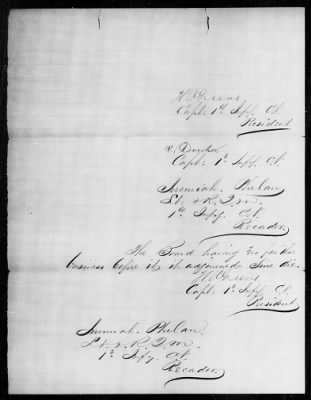 H. Greene
Capt. 1st Inf. Ct.
President
Capt. 1st Inf. Ct.
Jeremiah Phelan
Lt. & R. Q. M.
1st Infy. Ct.
Recorder
The Board having no further
business before it, it adjourned Sine die.
H. Greene
Capt. 1st Inf. Ct.
President
Jeremiah Phelan
Lt. & R. Q. M.
1st Infy. Ct.
Recorder